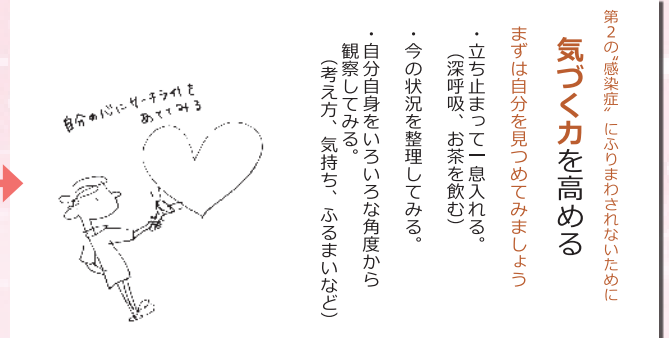 第2の〝感染症〟にふりまわされないために
気づく力を高める
まずは自分を見つめてみましょう
・立ち止まって一息入れる。
（深呼吸、お茶を飲む）
・今の状況を整理してみる。
・自分自身をいろいろな角度から
観察してみる。
（考え方、気持ち、ふるまいなど）
自分の心にサーチライトを
あててみる